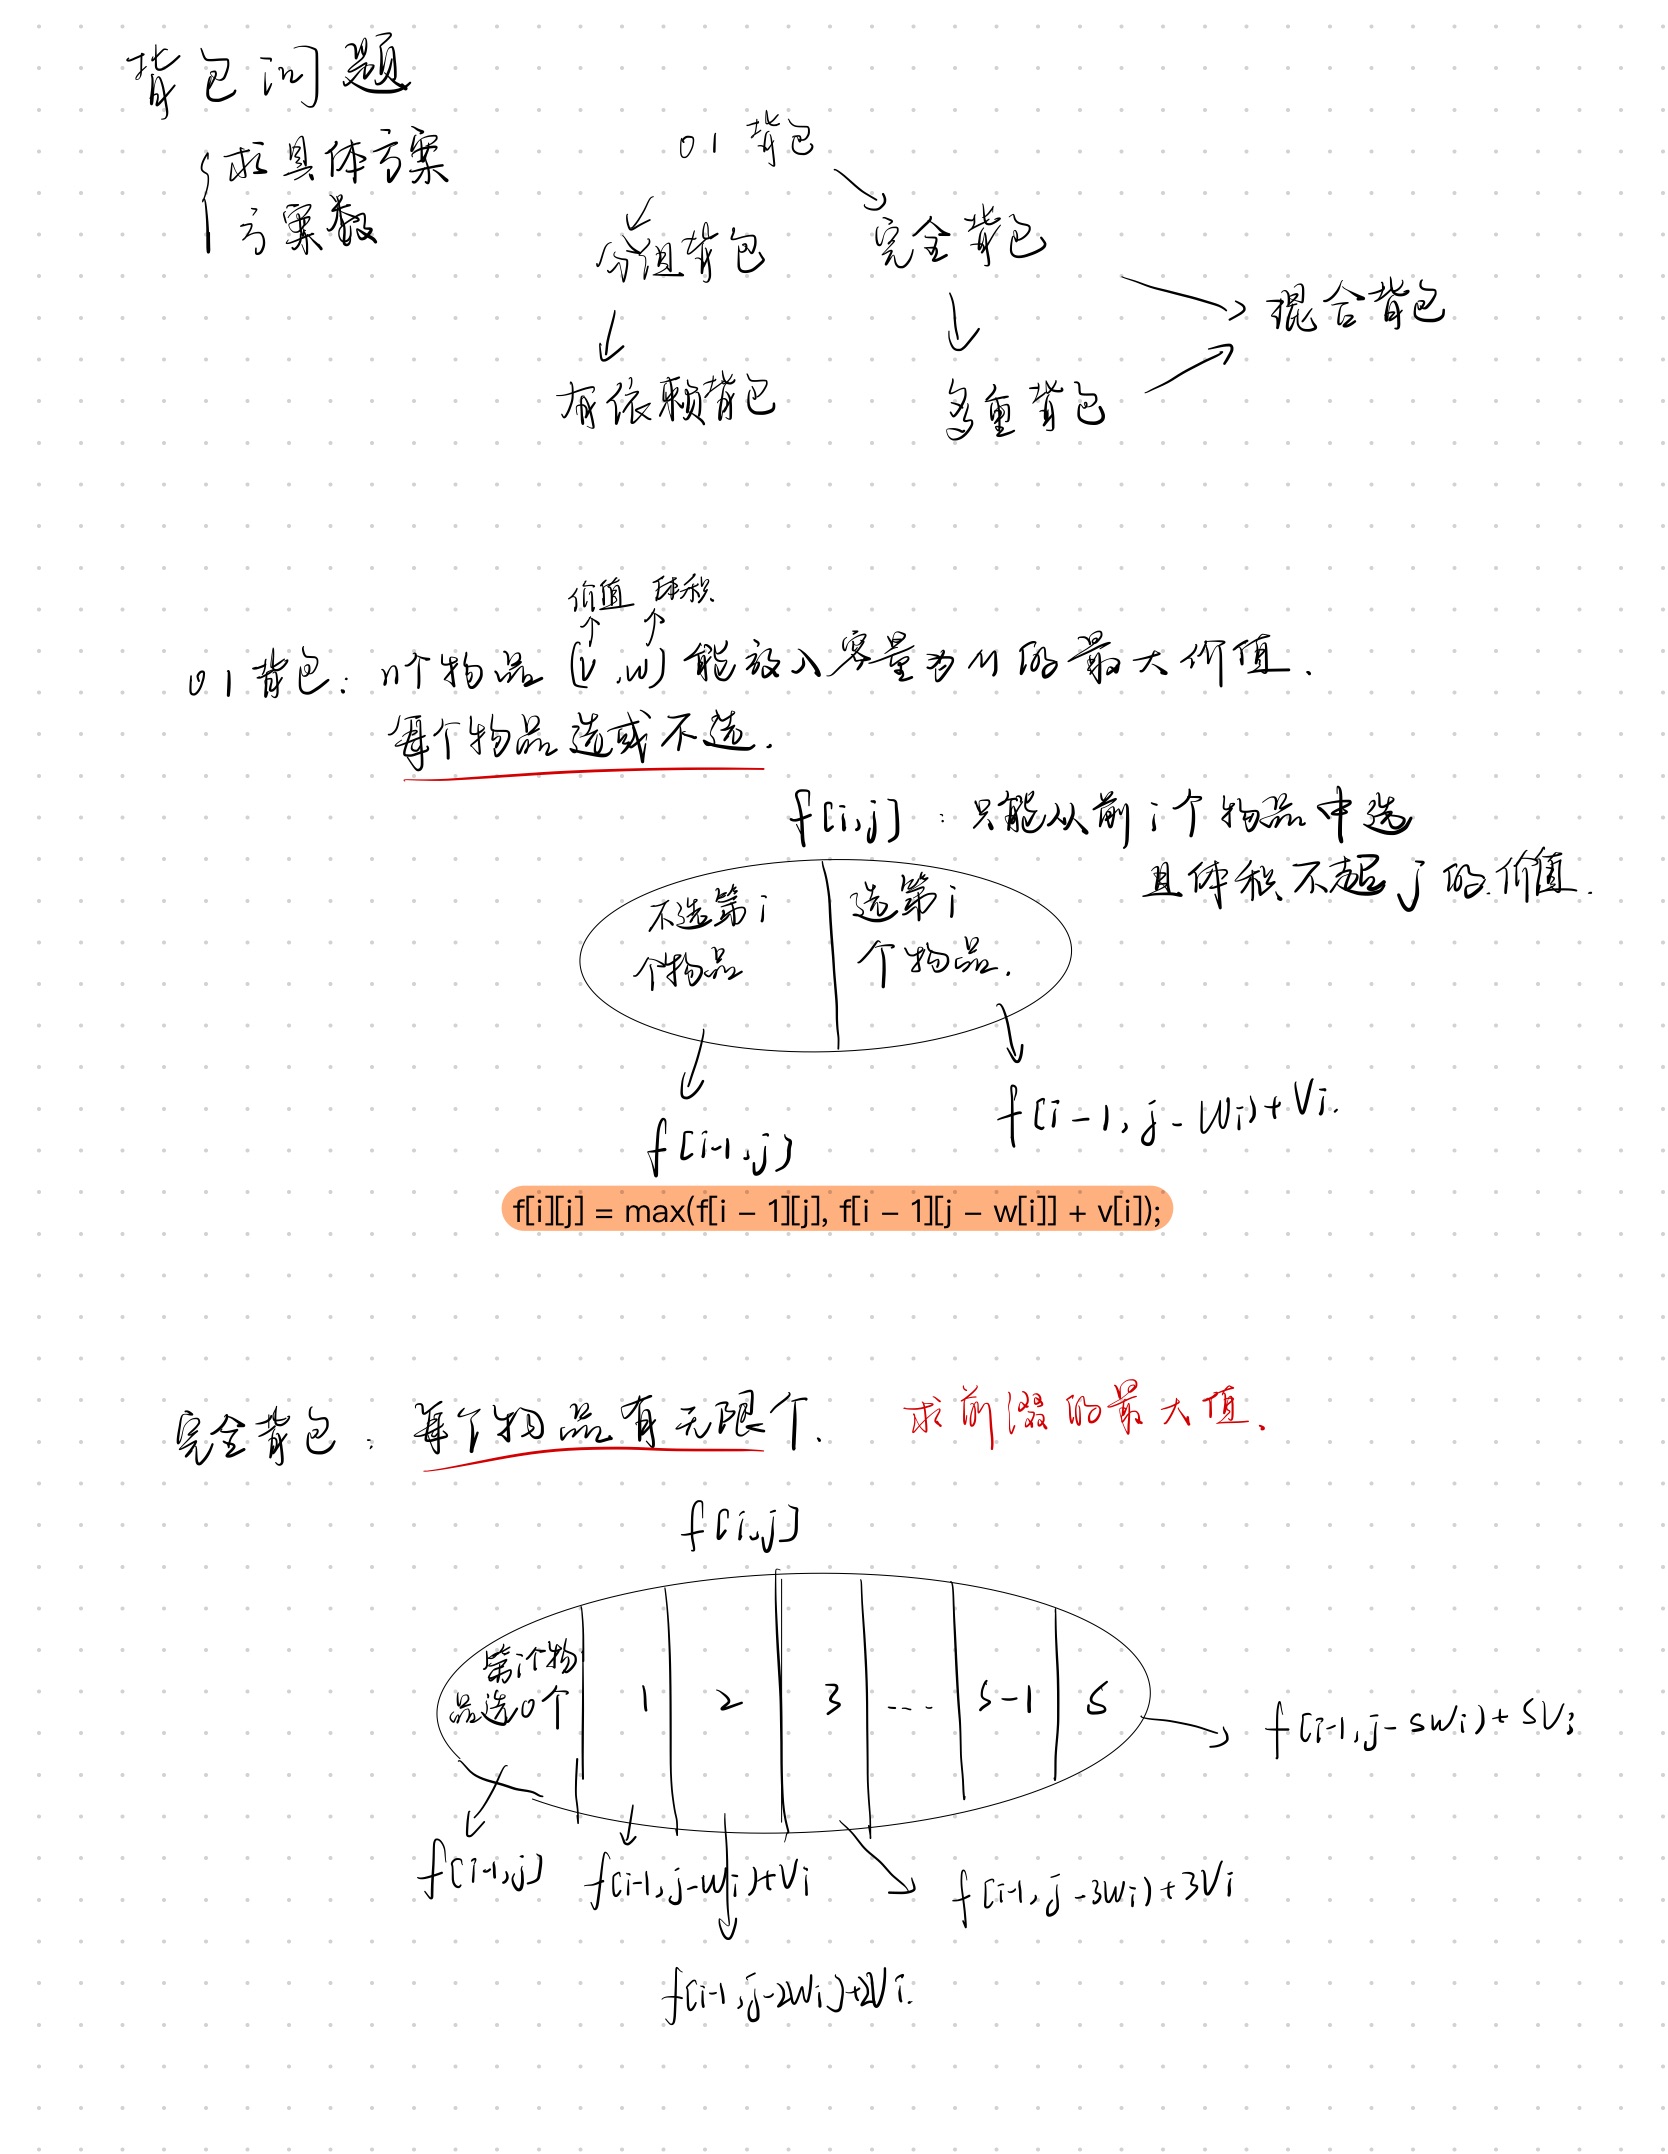 背包问题
求具体方案
方案数
01背包
分组背包
完全背包
混合背包
有依赖背包
多重背包
价值 体积
01背包: n个物品 (v,w) 能放入容量为M的最大价值.
每个物品选或不选.
f[i,j] : 只能从前i个物品中选
且体积不超j的价值.
不选第i
个物品
选第i
个物品.
f[i-1,j-Wi]+Vi.
f[i-1,j]
f[i][j] = max(f[i – 1][j], f[i – 1][j – w[i]] + v[i]);
完全背包: 每个物品有无限个. 求前缀的最大值.
f[i,j]
第i个物
品选0个
1 2 3 ... S-1 S
f[i-1,j-SWi]+SVi
f[i-1,j] f[i-1,j-Wi]+Vi f[i-1,j-3Wi]+3Vi
f[i-1,j-2Wi]+2Vi.